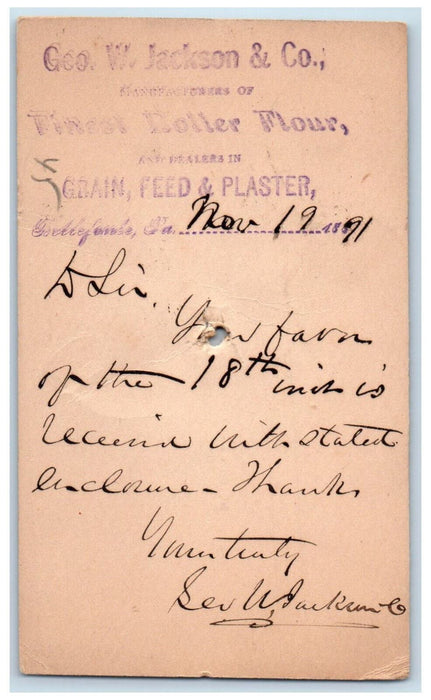 Geo. W. Jackson & Co.,
MANUFACTURERS OF
Finest Roller Flour,
AND DEALERS IN
GRAIN, FEED & PLASTER,
Bellefonte, Pa. Nov 19 1891
D Sir,
Your favor
of the 18th inst is
received with stated
enclosure - Thanks
Yours truly
Geo W. Jackson & Co